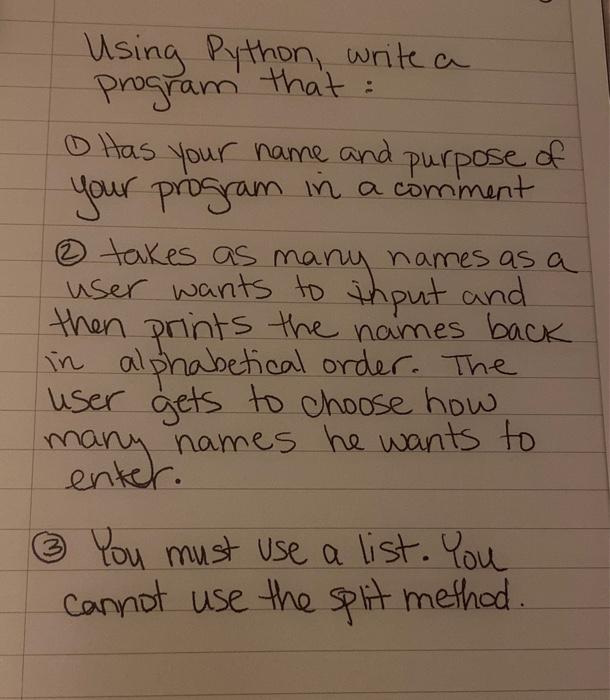 Using Python, write a
program that :
① Has your name and purpose of
your program in a comment
② takes as many names as a
user wants to input and
then prints the names back
in alphabetical order. The
user gets to choose how
many names he wants to
enter.
③ You must use a list. You
cannot use the split method.